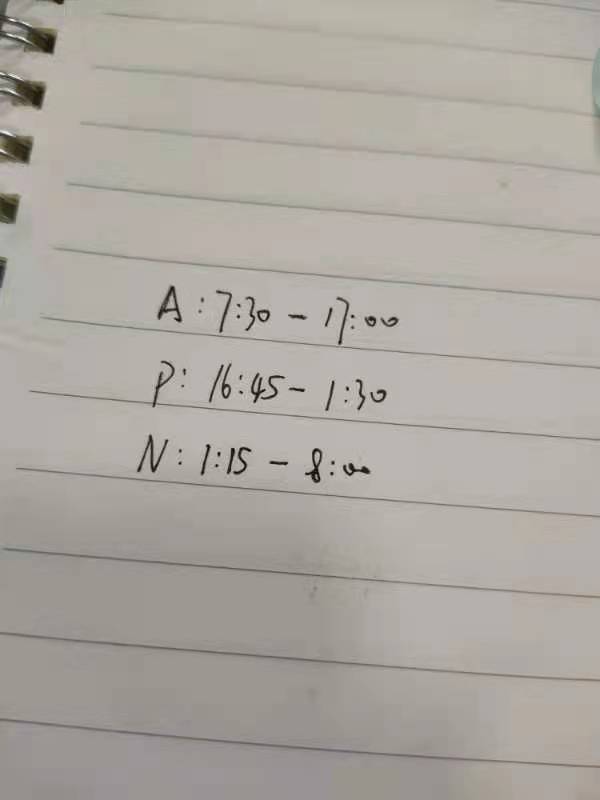 A: 7:30 - 17:00
P: 16:45 - 1:30
N: 1:15 - 8:00